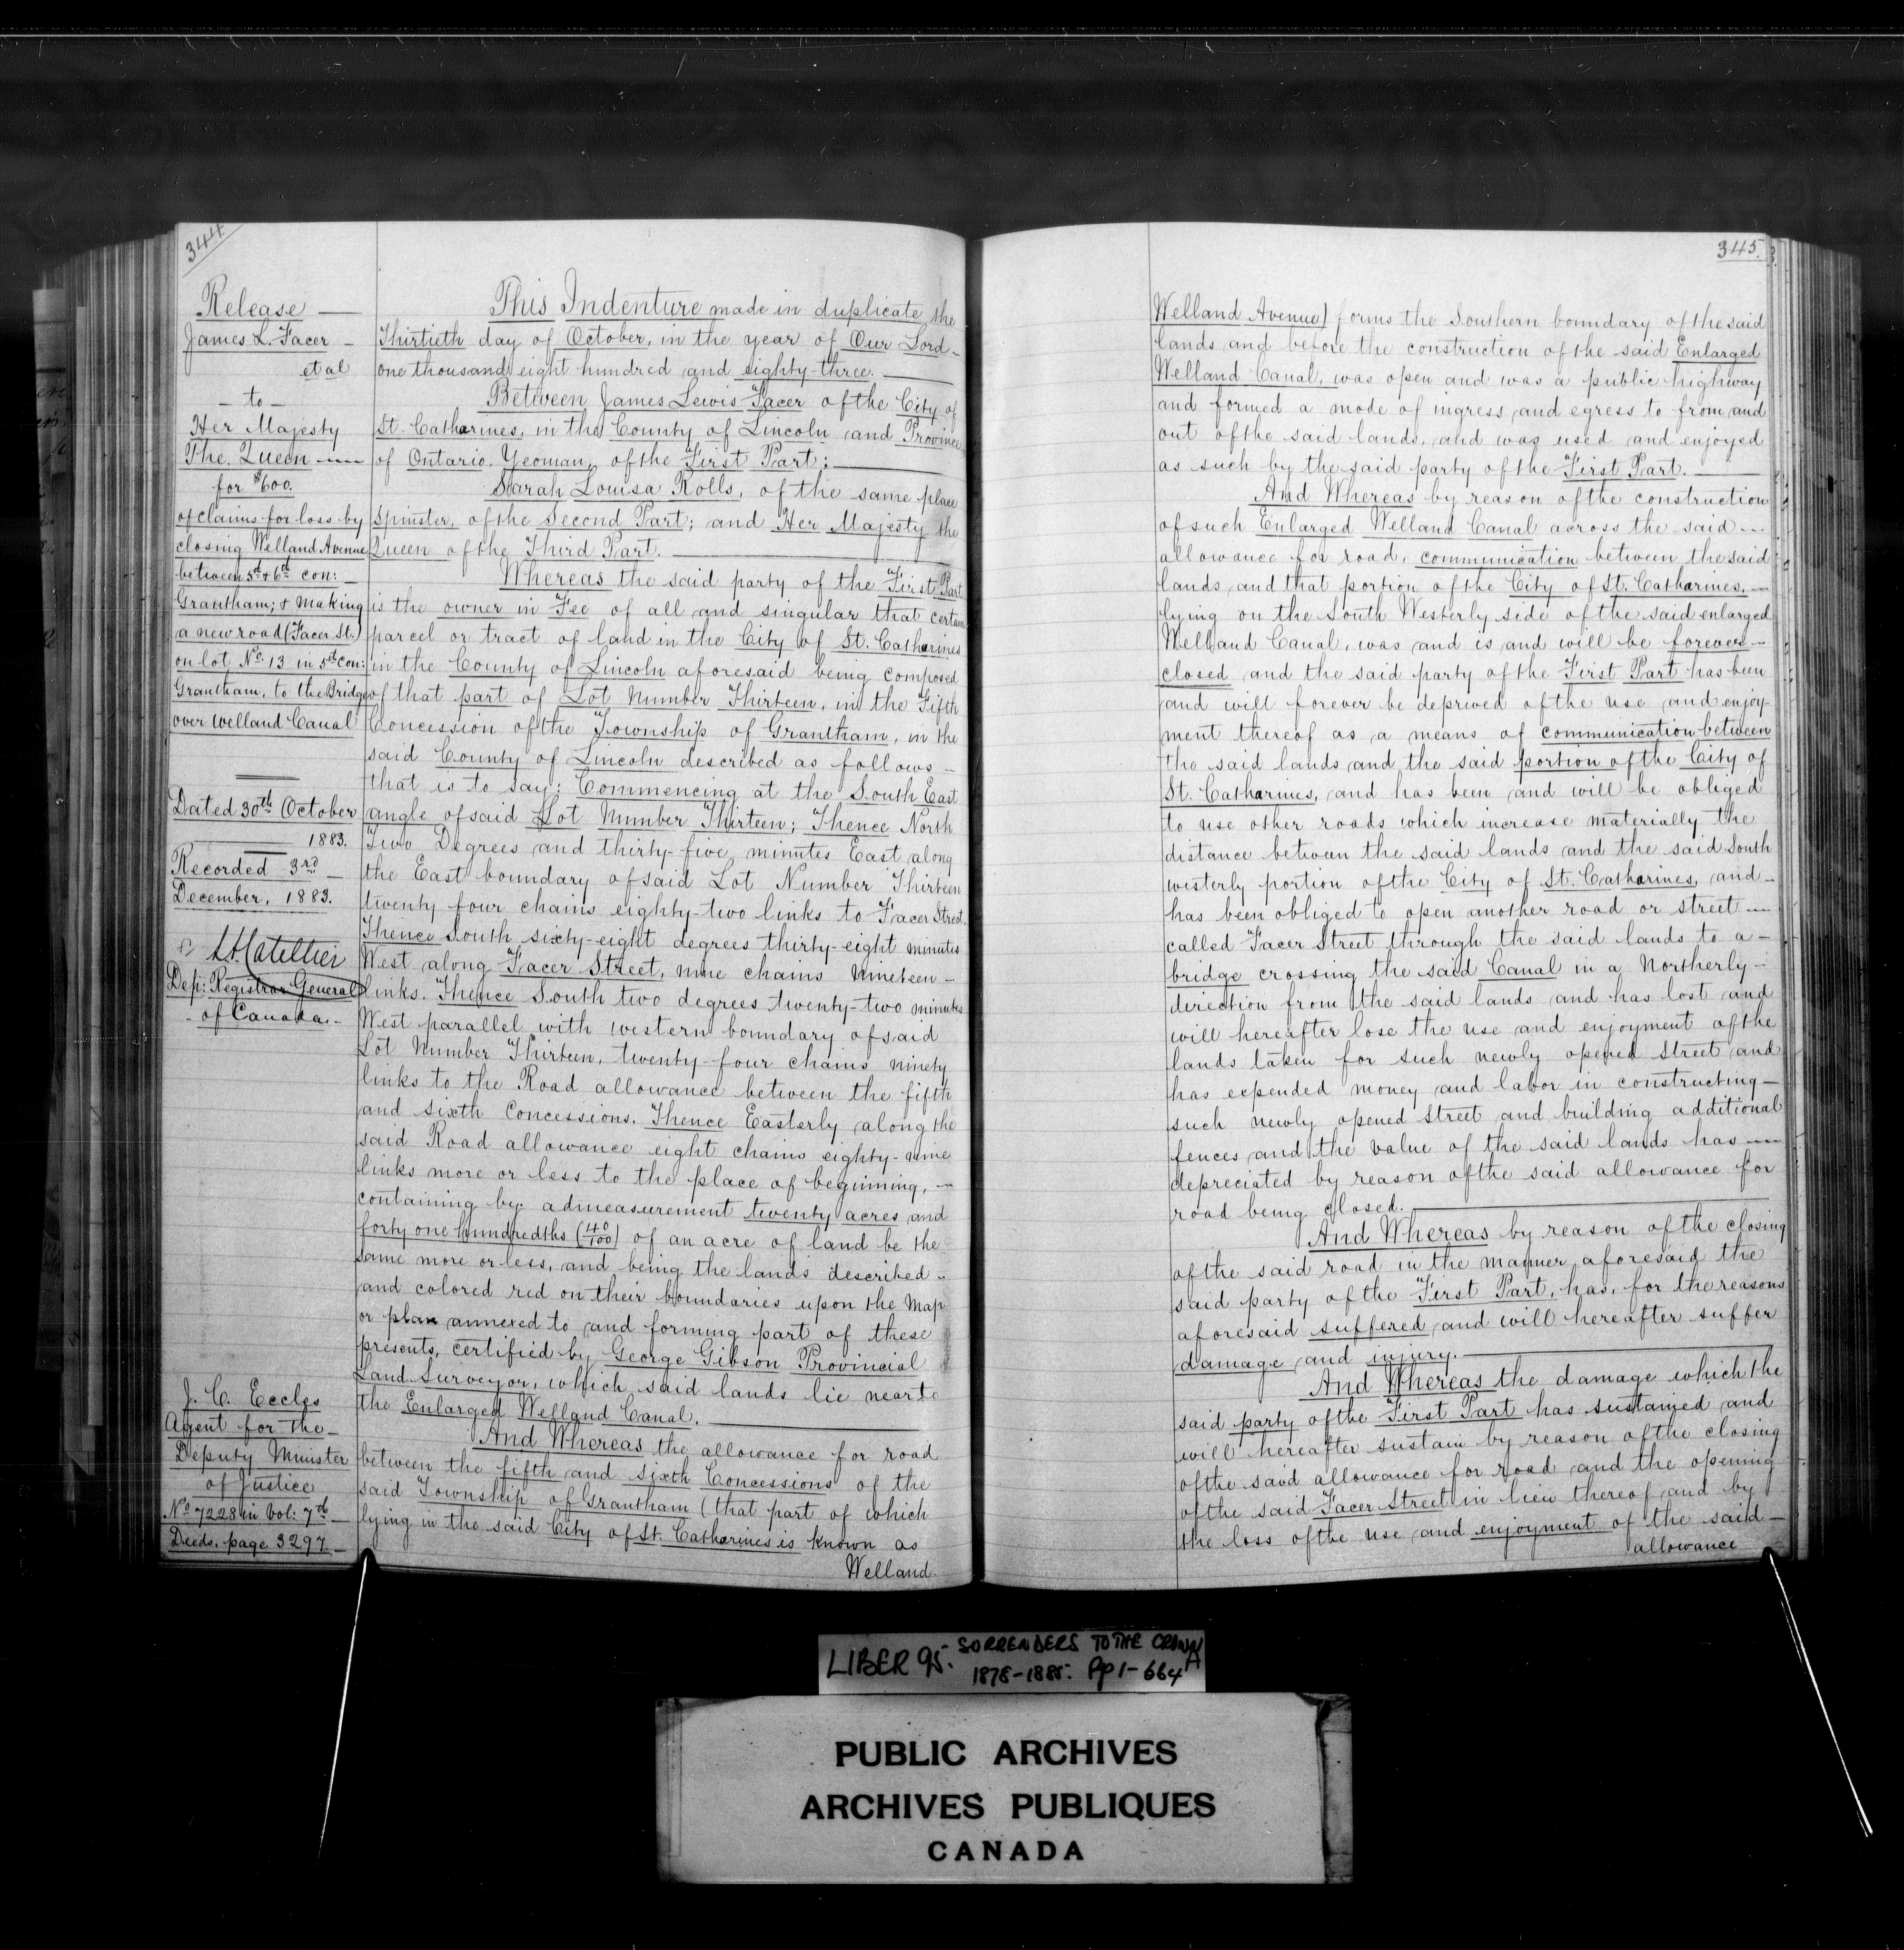 344.
Release —
James L. Facer —
et al
— to —
Her Majesty
The Queen —
for $600.
of claims for loss by
closing Welland Avenue
between 5th & 6th con: —
Grantham; & making
a new road (Facer St.)
on lot No. 13 in 5th con:
Grantham, to the Bridge
over Welland Canal
Dated 30th October
1883.
Recorded 3rd —
December, 1883.
Dep: Registrar General
of Canada. —
J. C. Eccles
Agent for the —
Deputy Minister
of Justice
No 7228 in Vol: 7th —
Deeds, page 3297. —
This Indenture made in duplicate the
Thirtieth day of October, in the year of Our Lord —
one thousand eight hundred and eighty-three. —
Between James Lewis Facer of the City of
St. Catharines, in the County of Lincoln and Province
of Ontario. Yeoman, of the First Part; —
Sarah Louisa Rolls, of the same place
Spinster, of the Second Part; and Her Majesty the
Queen of the Third Part. —
Whereas the said party of the First Part
is the owner in Fee of all and singular that certain
parcel or tract of land in the City of St. Catharines
in the County of Lincoln aforesaid being composed
of that part of Lot Number Thirteen, in the Fifth
Concession of the Township of Grantham, in the
said County of Lincoln described as follows —
that is to say: Commencing at the South East
angle of said Lot Number Thirteen; Thence North
Two Degrees and thirty-five minutes East along
the East boundary of said Lot Number Thirteen
twenty four chains eighty-two links to Facer Street.
Thence South sixty-eight degrees thirty-eight minutes
West along Facer Street, nine chains nineteen —
links. Thence South two degrees twenty-two minutes
West parallel with western boundary of said
Lot Number Thirteen, twenty-four chains ninety
links to the Road allowance between the fifth
and sixth Concessions. Thence Easterly along the
said Road allowance eight chains eighty-nine
links more or less to the place of beginning, —
containing by admeasurement twenty acres and
forty one hundredths (40/100) of an acre of land be the
same more or less, and being the lands described —
and colored red on their boundaries upon the Map
or plan annexed to and forming part of these
presents, certified by George Gibson Provincial
Land Surveyor, which said lands lie near to
the Enlarged Welland Canal. —
And Whereas the allowance for road
between the fifth and sixth Concessions of the
said Township of Grantham (that part of which
lying in the said City of St. Catharines is known as
Welland
345.
Welland Avenue) forms the Southern boundary of the said
lands and before the construction of the said Enlarged
Welland Canal, was open and was a public highway
and formed a mode of ingress and egress to from and
out of the said lands, and was used and enjoyed
as such by the said party of the First Part. —
And Whereas by reason of the construction
of such Enlarged Welland Canal across the said —
allowance for road, communication between the said
lands and that portion of the City of St. Catharines, —
lying on the South Westerly side of the said enlarged
Welland Canal, was and is and will be forever —
closed and the said party of the First Part has been
and will forever be deprived of the use and enjoy-
ment thereof as a means of communication between
the said lands and the said portion of the City of
St. Catharines, and has been and will be obliged
to use other roads which increase materially the
distance between the said lands and the said South
westerly portion of the City of St. Catharines, and —
has been obliged to open another road or street —
called Facer Street through the said lands to a —
bridge crossing the said Canal in a Northerly —
direction from the said lands and has lost and
will hereafter lose the use and enjoyment of the
lands taken for such newly opened Street and
has expended money and labor in constructing —
such newly opened Street and building additional
fences and the value of the said lands has —
depreciated by reason of the said allowance for
road being closed. —
And Whereas by reason of the closing
of the said road in the manner aforesaid the
said party of the First Part, has, for the reasons
aforesaid suffered and will hereafter suffer
damage and injury. —
And Whereas the damage which the
said party of the First Part has sustained and
will hereafter sustain by reason of the closing
of the said allowance for road and the opening
of the said Facer Street in lieu thereof and by
the loss of the use and enjoyment of the said —
allowance
LIBER 95. SURRENDERS TO THE CROWN A
1878-1885. Pp 1-664
PUBLIC ARCHIVES
ARCHIVES PUBLIQUES
CANADA